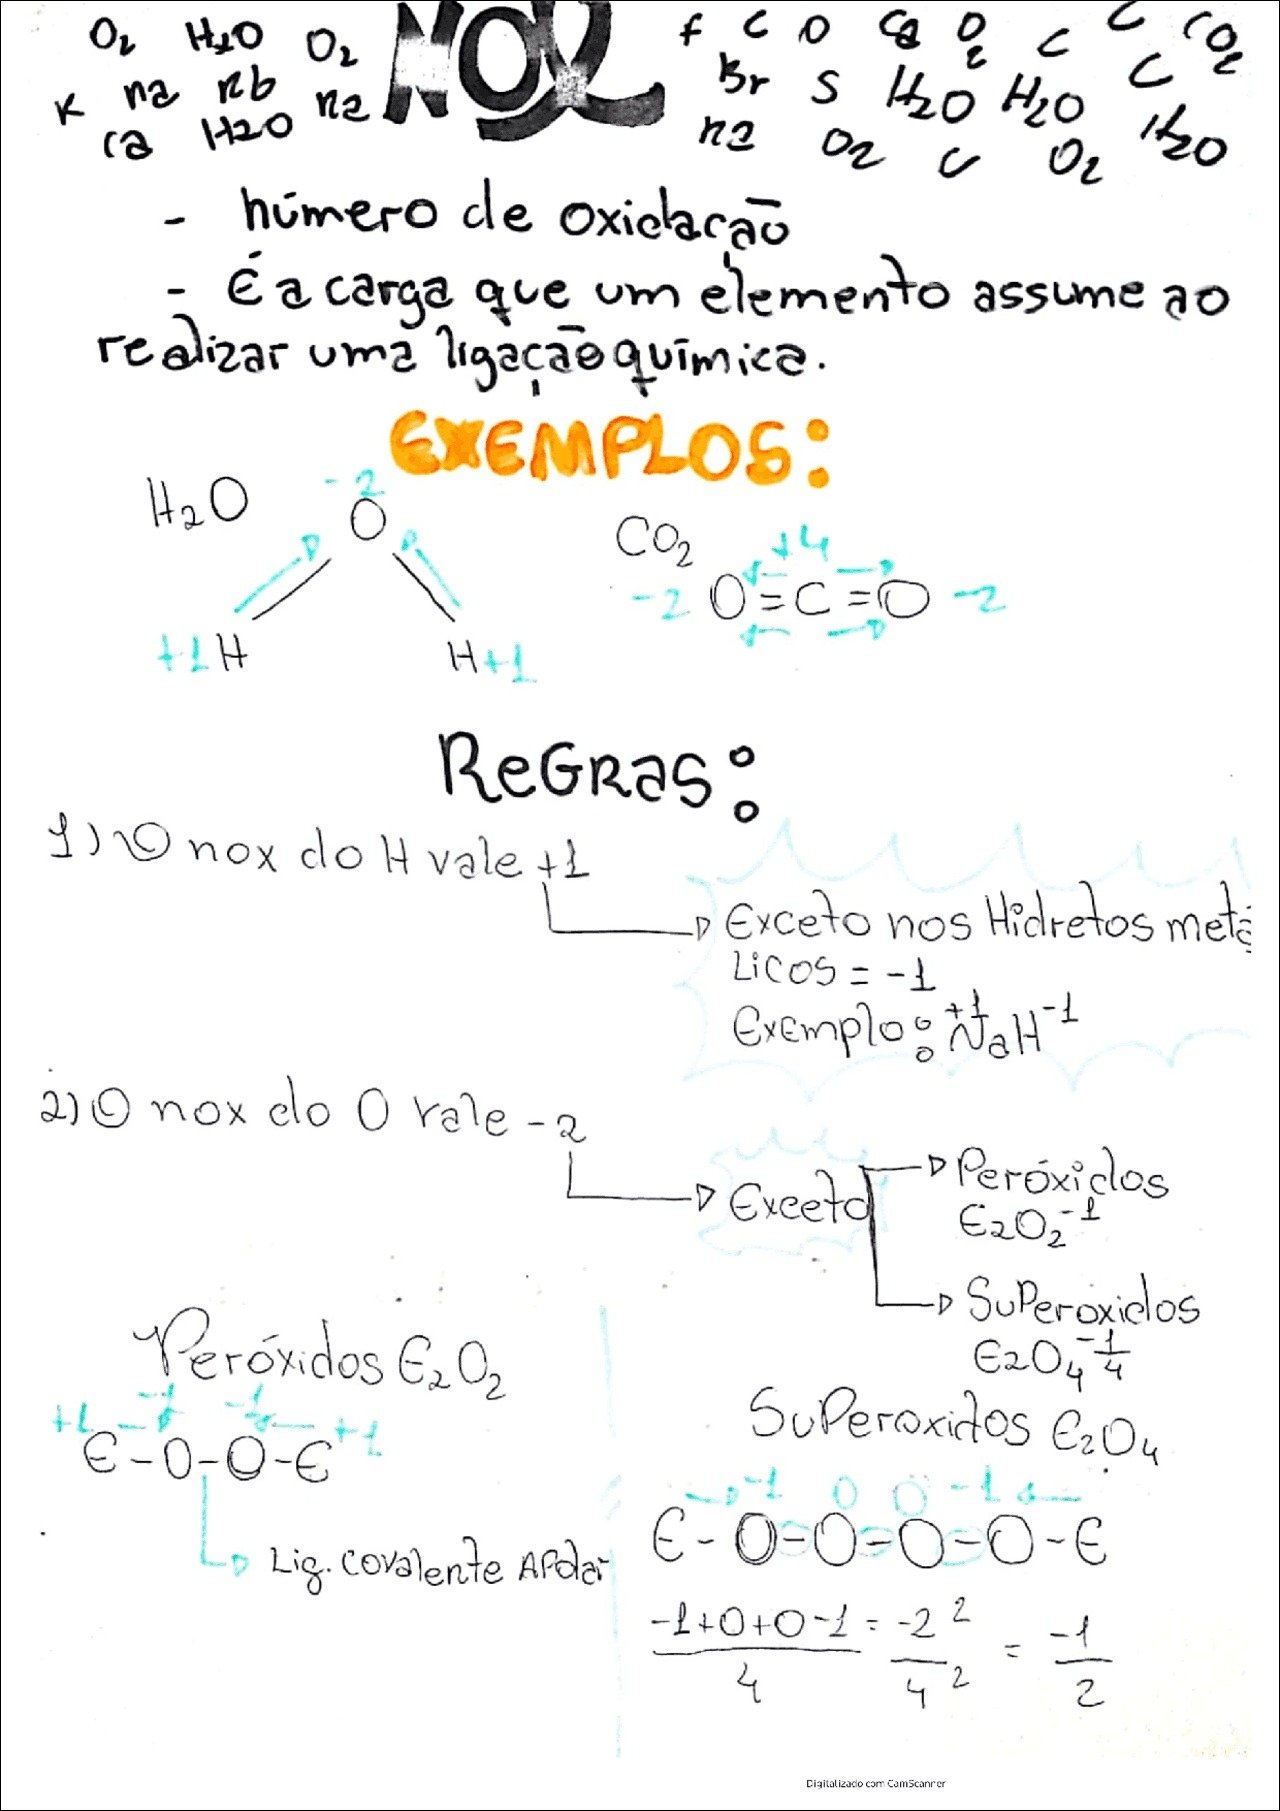 O₂ H₂O O₂ NOX F C O Ca O₂ C C CO₂
K Na Rb Na Br S H₂O H₂O C
Ca H2O Na O₂ C O₂ H₂O
- Número de oxidação
- É a carga que um elemento assume ao
realizar uma ligação química.
EXEMPLOS:
H₂O
-2
O
+1 H
H +1
CO₂
+4
-2 O=C=O -2
ReGRas:
1) O nox do H vale +1
Exceto nos Hidretos metá
Licos = -1
Exemplo: +1 NaH⁻¹
2) O nox do O vale -2
Exceto
Peróxidos
E₂O₂⁻¹
Superoxidos
E₂O₄ -1/4
Peróxidos E₂O₂
+1 -1 -1 +1
E-O-O-E
Lig. covalente Apolar
Superoxidos E₂O₄
-1 0 0 -1
E-O-O-O-O-E
-1+0+0-1 = -2 ² = -1
4 4 ² 2
Digitalizado com CamScanner